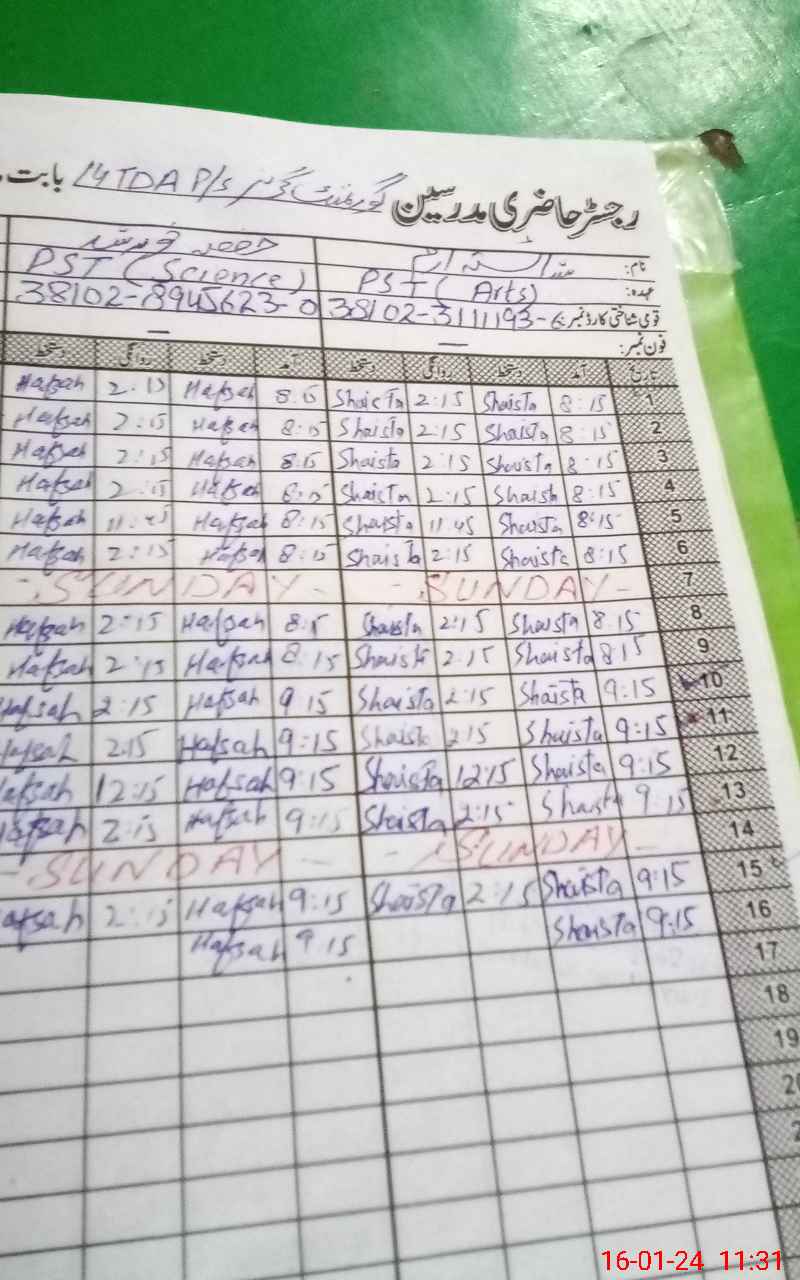 رجسٹر حاضری مدرسین گورنمنٹ گرلز P/S 14 TDA بابت
نام: شائستہ ارم حفصہ خورشید
عہدہ: PST (Arts) PST (Science)
قومی شناختی کارڈ نمبر: 38102-3111193-6 38102-8945623-0
فون نمبر: — —
تاریخ آمد دستخط روانگی دستخط آمد دستخط روانگی دستخط
1 8:15 Shaista 2:15 Shaista 8:15 Hafsah 2:15 Hafsah
2 8:15 Shaista 2:15 Shaista 8:15 Hafsah 2:15 Hafsah
3 8:15 Shaista 2:15 Shaista 8:15 Hafsah 2:15 Hafsah
4 8:15 Shaista 2:15 Shaista 8:15 Hafsah 2:15 Hafsah
5 8:15 Shaista 11:45 Shaista 8:15 Hafsah 11:45 Hafsah
6 8:15 Shaista 2:15 Shaista 8:15 Hafsah 2:15 Hafsah
7 - SUNDAY - - SUNDAY -
8 8:15 Shaista 2:15 Shaista 8:15 Hafsah 2:15 Hafsah
9 8:15 Shaista 2:15 Shaista 8:15 Hafsah 2:15 Hafsah
10 9:15 Shaista 2:15 Shaista 9:15 Hafsah 2:15 Hafsah
11 9:15 Shaista 2:15 Shaista 9:15 Hafsah 2:15 Hafsah
12 9:15 Shaista 12:15 Shaista 9:15 Hafsah 12:15 Hafsah
13 9:15 Shaista 2:15 Shaista 9:15 Hafsah 2:15 Hafsah
14 - SUNDAY - - SUNDAY -
15 9:15 Shaista 2:15 Shaista 9:15 Hafsah 2:15 Hafsah
16 9:15 Shaista 9:15 Hafsah
17
18
19
20
16-01-24 11:31